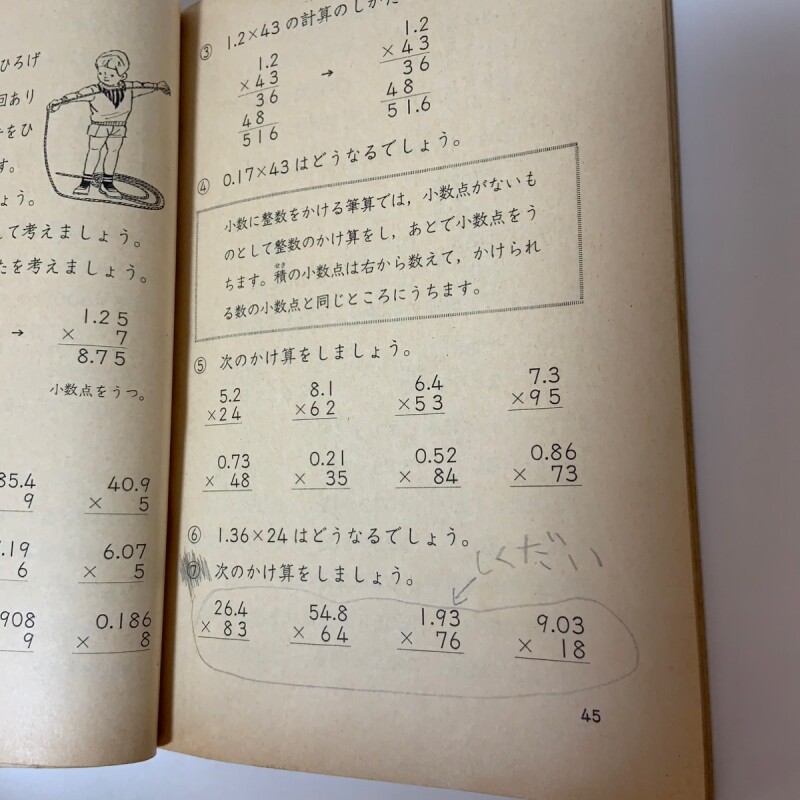 ひろげ
回あり
をひ
す。
ょう。
て考えましょう。
たを考えましょう。
→
1.25
× 7
8.75
小数点をうつ。
85.4
9
40.9
× 5
.19
6
6.07
× 5
908
9
0.186
× 8
③ 1.2×43の計算のしかた
1.2
×43
36
48
516
→
1.2
×43
36
48
51.6
④ 0.17×43はどうなるでしょう。
小数に整数をかける筆算では，小数点がないも
のとして整数のかけ算をし，あとで小数点をう
せき
ちます。積の小数点は右から数えて，かけられ
る数の小数点と同じところにうちます。
⑤ 次のかけ算をしましょう。
5.2
×24
8.1
×62
6.4
×53
7.3
×95
0.73
× 48
0.21
× 35
0.52
× 84
0.86
× 73
⑥ 1.36×24はどうなるでしょう。
しくだい
⑦ 次のかけ算をしましょう。
26.4
× 83
54.8
× 64
1.93
× 76
9.03
× 18
45